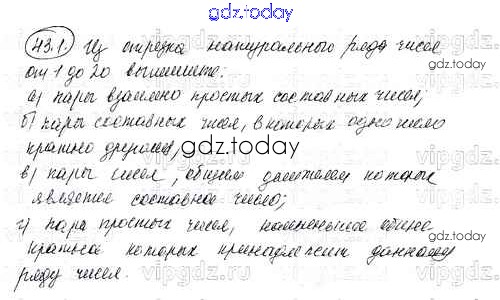 gdz.today
43.1. Из отрезка натурального ряда чисел
от 1 до 20 выпишите:
а) пары взаимно простых составных чисел;
б) пары составных чисел, в которых одно число
кратно другому;
gdz.today
в) пары чисел, общим делителем которых
является составное число;
г) пара простых чисел, наименьшее общее
кратное которых принадлежит данному
ряду чисел.
gdz.today
vipgdz.ru